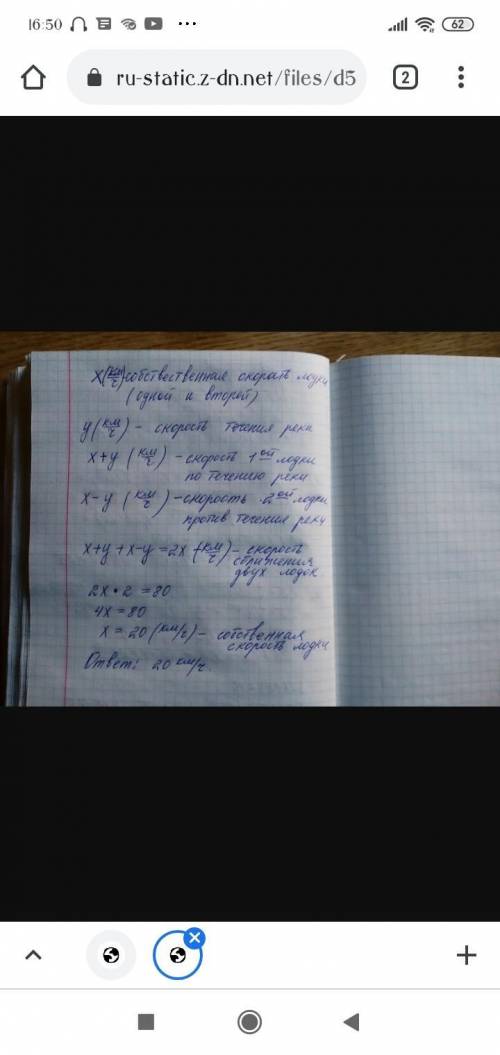 16:50
62
ru-static.z-dn.net/files/d5
2
x(км/ч) собственная скорость лодки
(одной и второй)
y(км/ч) - скорость течения реки
x+y (км/ч) - скорость 1ой лодки
по течению реки
x-y (км/ч) - скорость 2ой лодки
против течения реки
x+y+x-y=2x (км/ч) - скорость
сближения
двух лодок
2x•2=80
4x=80
x=20 (км/ч) - собственная
скорость лодки
Ответ: 20 км/ч.